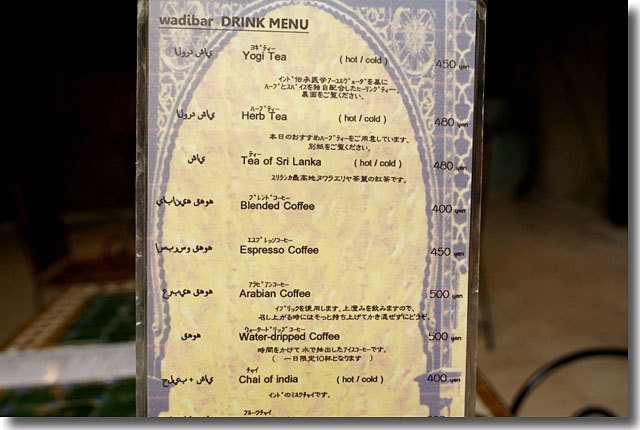 wadibar DRINK MENU
ヨギティー
الورد شاي Yogi Tea ( hot / cold ) 450 yen
インド伝承医学アーユルヴェーダを基に
ハーブとスパイスを独自配合したヒーリングティー。
裏面をご覧ください。
ハーブティー
الورد شاي Herb Tea ( hot / cold ) 480 yen
本日のおすすめハーブティーをご用意しています。
別紙をご覧ください。
ティー
شاي Tea of Sri Lanka ( hot / cold ) 480 yen
スリランカ最高地ヌワラエリヤ茶葉の紅茶です。
ブレンドコーヒー
يابانيه قهوه Blended Coffee 400 yen
エスプレッソコーヒー
اسبرسو قهوه Espresso Coffee 450 yen
アラビアンコーヒー
عربيه قهوه Arabian Coffee 500 yen
イブリックを使用します。上澄みを飲みますので、
召し上がる時にはそっと持ち上げてかき混ぜずにどうぞ。
ウォータードリップコーヒー
قهوه Water-dripped Coffee 500 yen
時間をかけて水で抽出したアイスコーヒーです。
( 一日限定10杯となります )
チャイ
حليب + شاي Chai of india ( hot / cold ) 400 yen
インドのミルクチャイです。
フルークチャイ